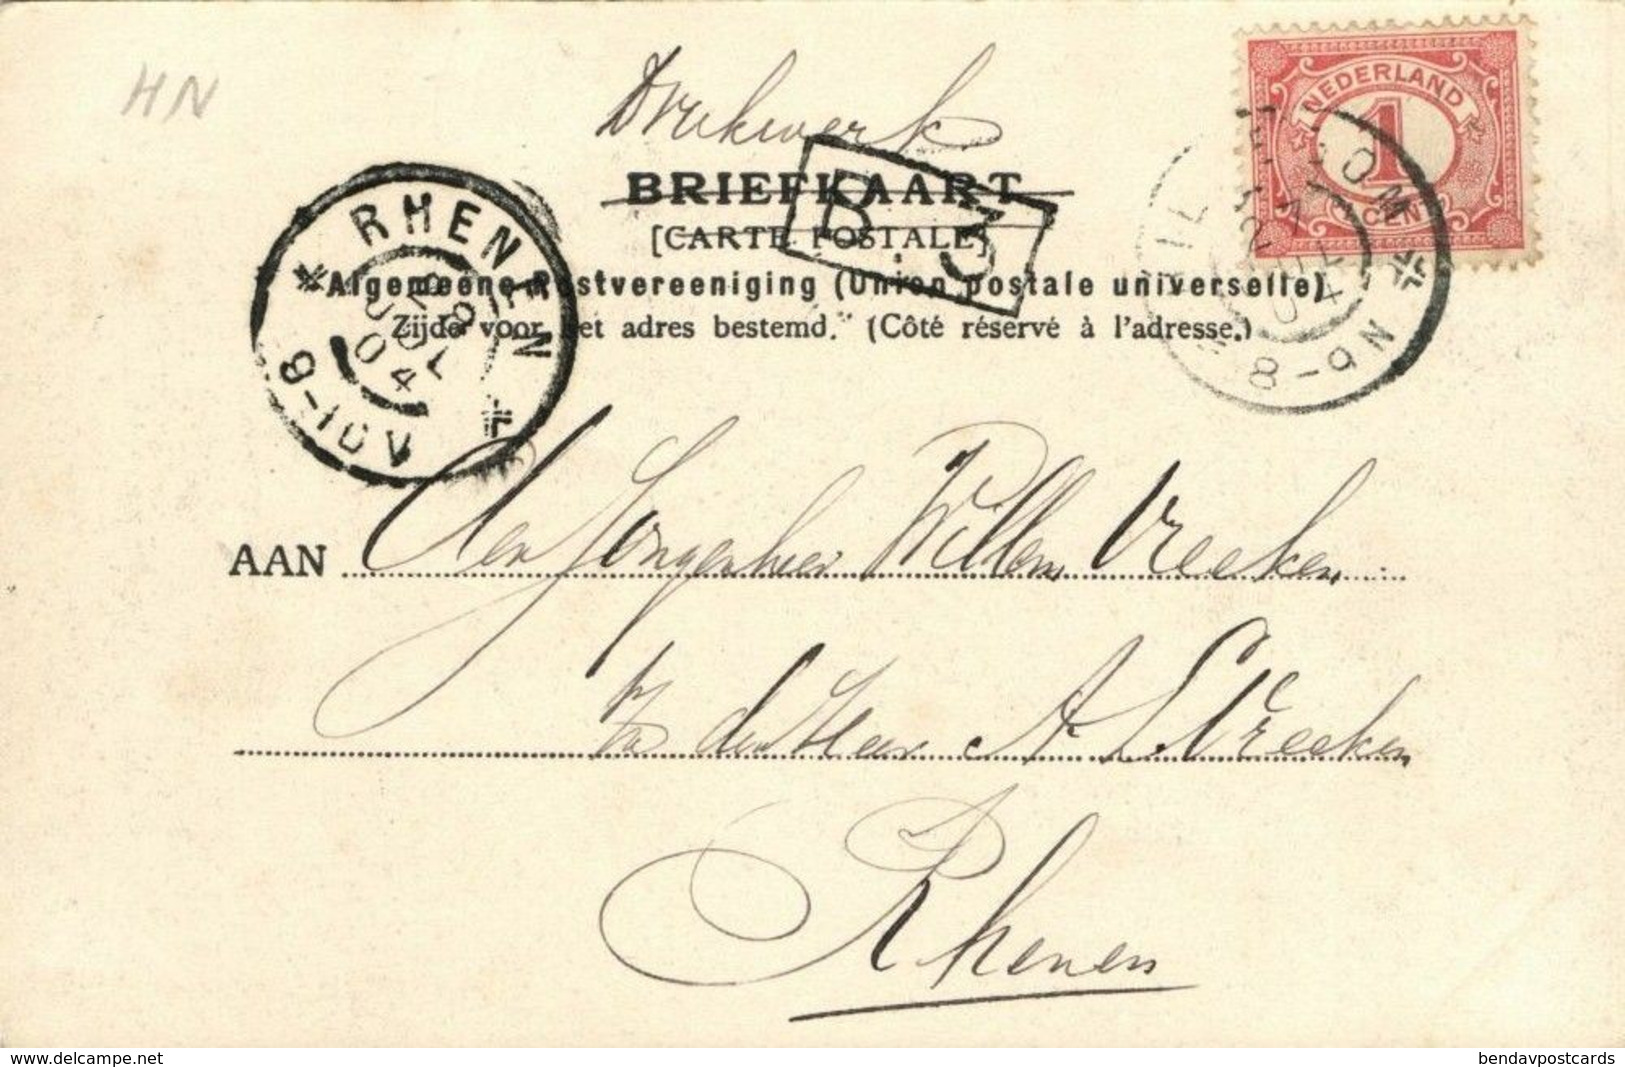 HN
Drukwerk
NEDERLAND
1
CENT
BRIEFKAART
[CARTE POSTALE]
B. 3
Algemeene Postvereeniging (Union postale universelle)
Zijde voor het adres bestemd. (Côté réservé à l'adresse.)
RHENEN
8-10V
04
8-9N
AAN Den Jongenheer Willem Vreeken
p/a den Heer A Vreeken
Rhenen
www.delcampe.net
bendavpostcards